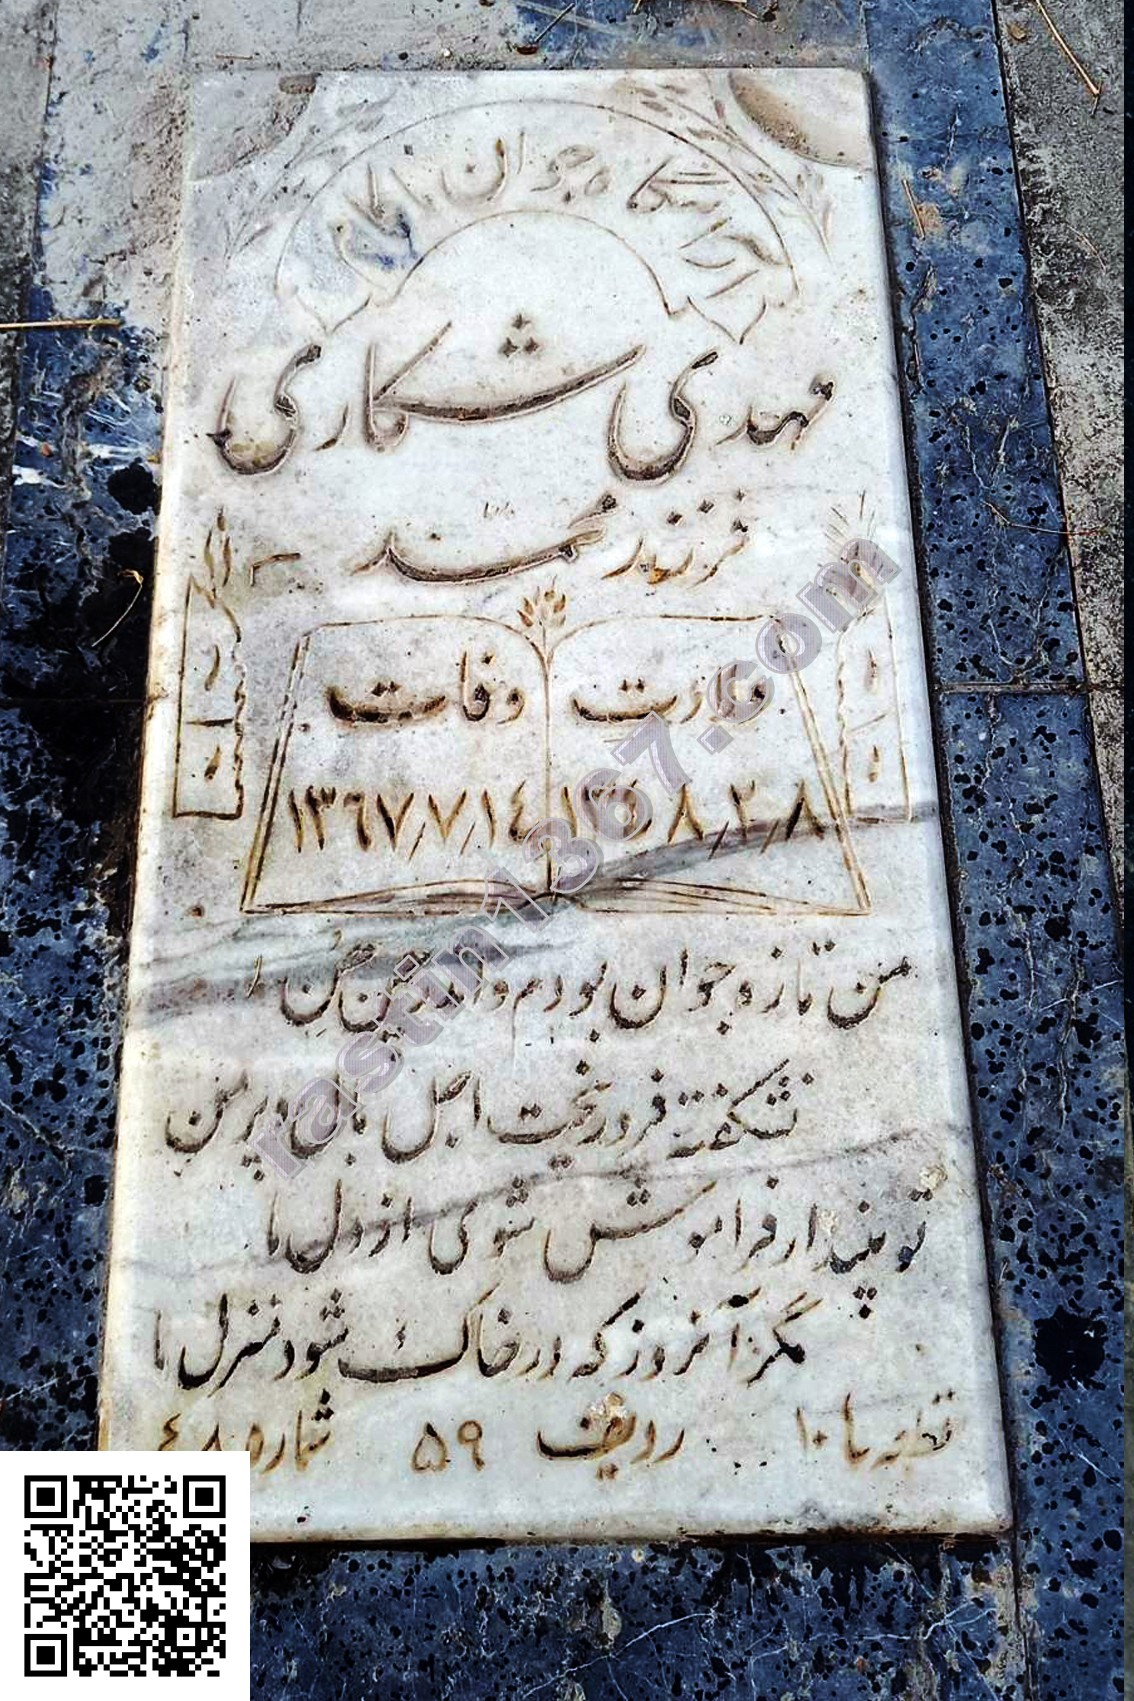 آرامگاه جوان ناکام
مهدی شکاری
فرزند محمد
ولادت
وفات
۸ر۲ر۱۳۵۸
۱۴ر۷ر۱۳۶۷
من تازه جوان بودم و اندر چمن
نشکفته فرو ریخت اجل بال و پر من
تو مپندار فراموش شوی از دل ما
مگر آنروز که در خاک شود منزل ما
قطعه ۱۰ ردیف ۵۹ شماره ۴۸
rastin1367.com